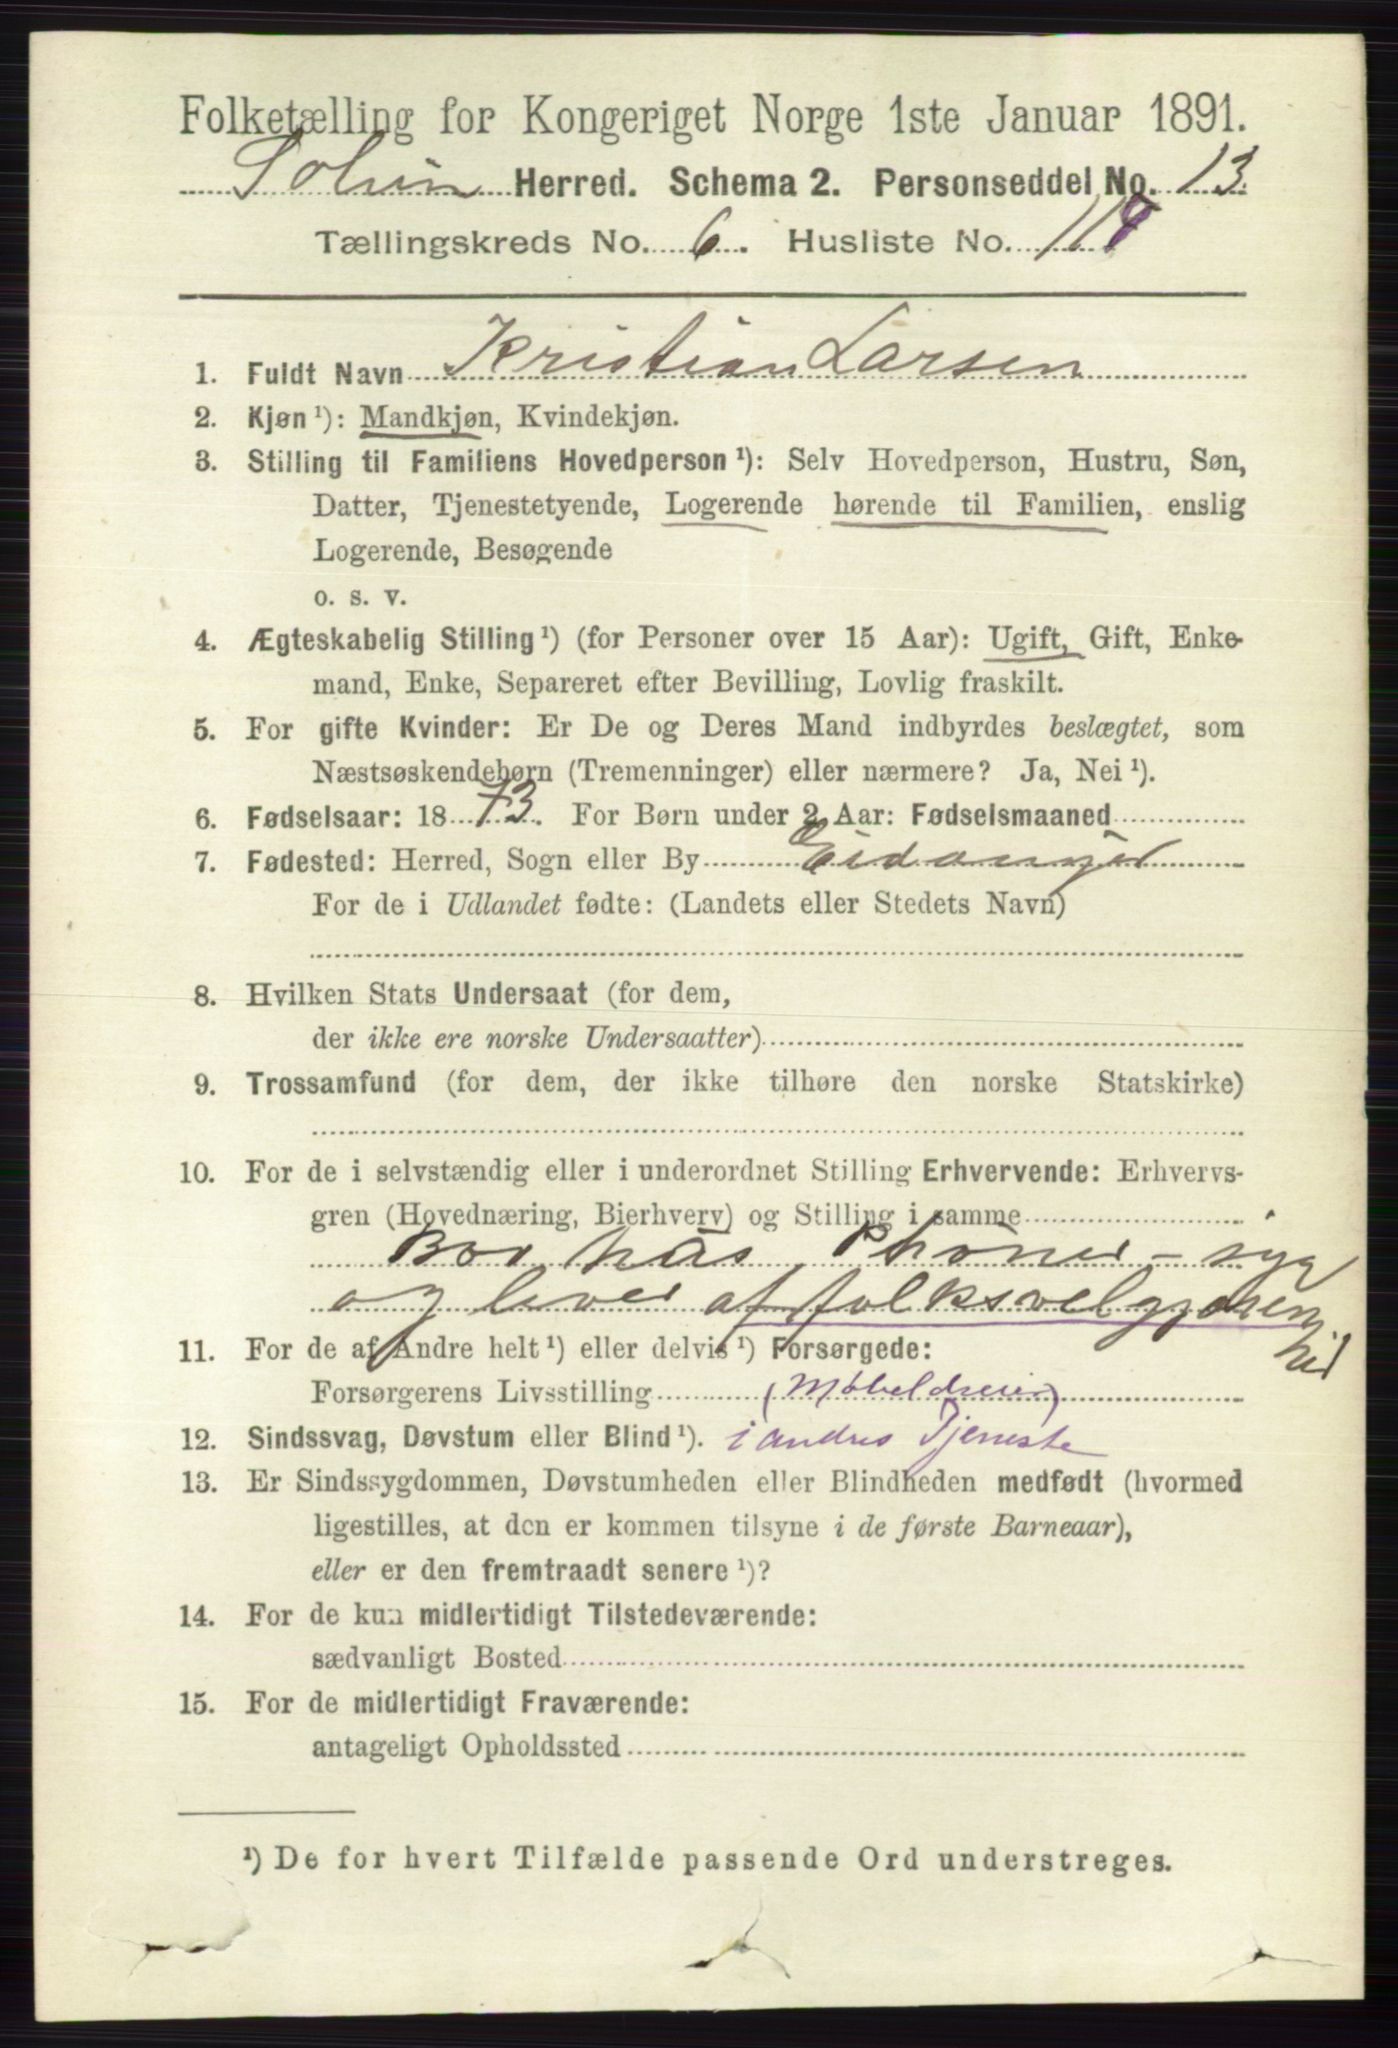 Folketælling for Kongeriget Norge 1ste Januar 1891.
Solum Herred. Schema 2. Personseddel No. 13.
Tællingskreds No. 6. Husliste No. 118
1. Fuldt Navn Kristian Larsen
2. Kjøn ¹): Mandkjøn, Kvindekjøn.
3. Stilling til Familiens Hovedperson ¹): Selv Hovedperson, Hustru, Søn,
Datter, Tjenestetyende, Logerende hørende til Familien, enslig
Logerende, Besøgende
o. s. v.
4. Ægteskabelig Stilling ¹) (for Personer over 15 Aar): Ugift, Gift, Enke-
mand, Enke, Separeret efter Bevilling, Lovlig fraskilt.
5. For gifte Kvinder: Er De og Deres Mand indbyrdes beslægtet, som
Næstsøskendebørn (Tremenninger) eller nærmere? Ja, Nei ¹).
6. Fødselsaar: 1873. For Børn under 2 Aar: Fødselsmaaned
7. Fødested: Herred, Sogn eller By Eidanger
For de i Udlandet fødte: (Landets eller Stedets Navn)
8. Hvilken Stats Undersaat (for dem,
der ikke ere norske Undersaatter)
9. Trossamfund (for dem, der ikke tilhøre den norske Statskirke)
10. For de i selvstændig eller i underordnet Stilling Erhvervende: Erhvervs-
gren (Hovednæring, Bierhverv) og Stilling i samme
Bor hos - syg
og lever af folksvelgjøren
hed
11. For de af Andre helt ¹) eller delvis ¹) Forsørgede:
Forsørgerens Livsstilling (Møbeldreier)
12. Sindssvag, Døvstum eller Blind ¹). i andres Tjeneste
13. Er Sindssygdommen, Døvstumheden eller Blindheden medfødt (hvormed
ligestilles, at den er kommen tilsyne i de første Barneaar),
eller er den fremtraadt senere ¹)?
14. For de kun midlertidigt Tilstedeværende:
sædvanligt Bosted
15. For de midlertidigt Fraværende:
antageligt Opholdssted
¹) De for hvert Tilfælde passende Ord understreges.